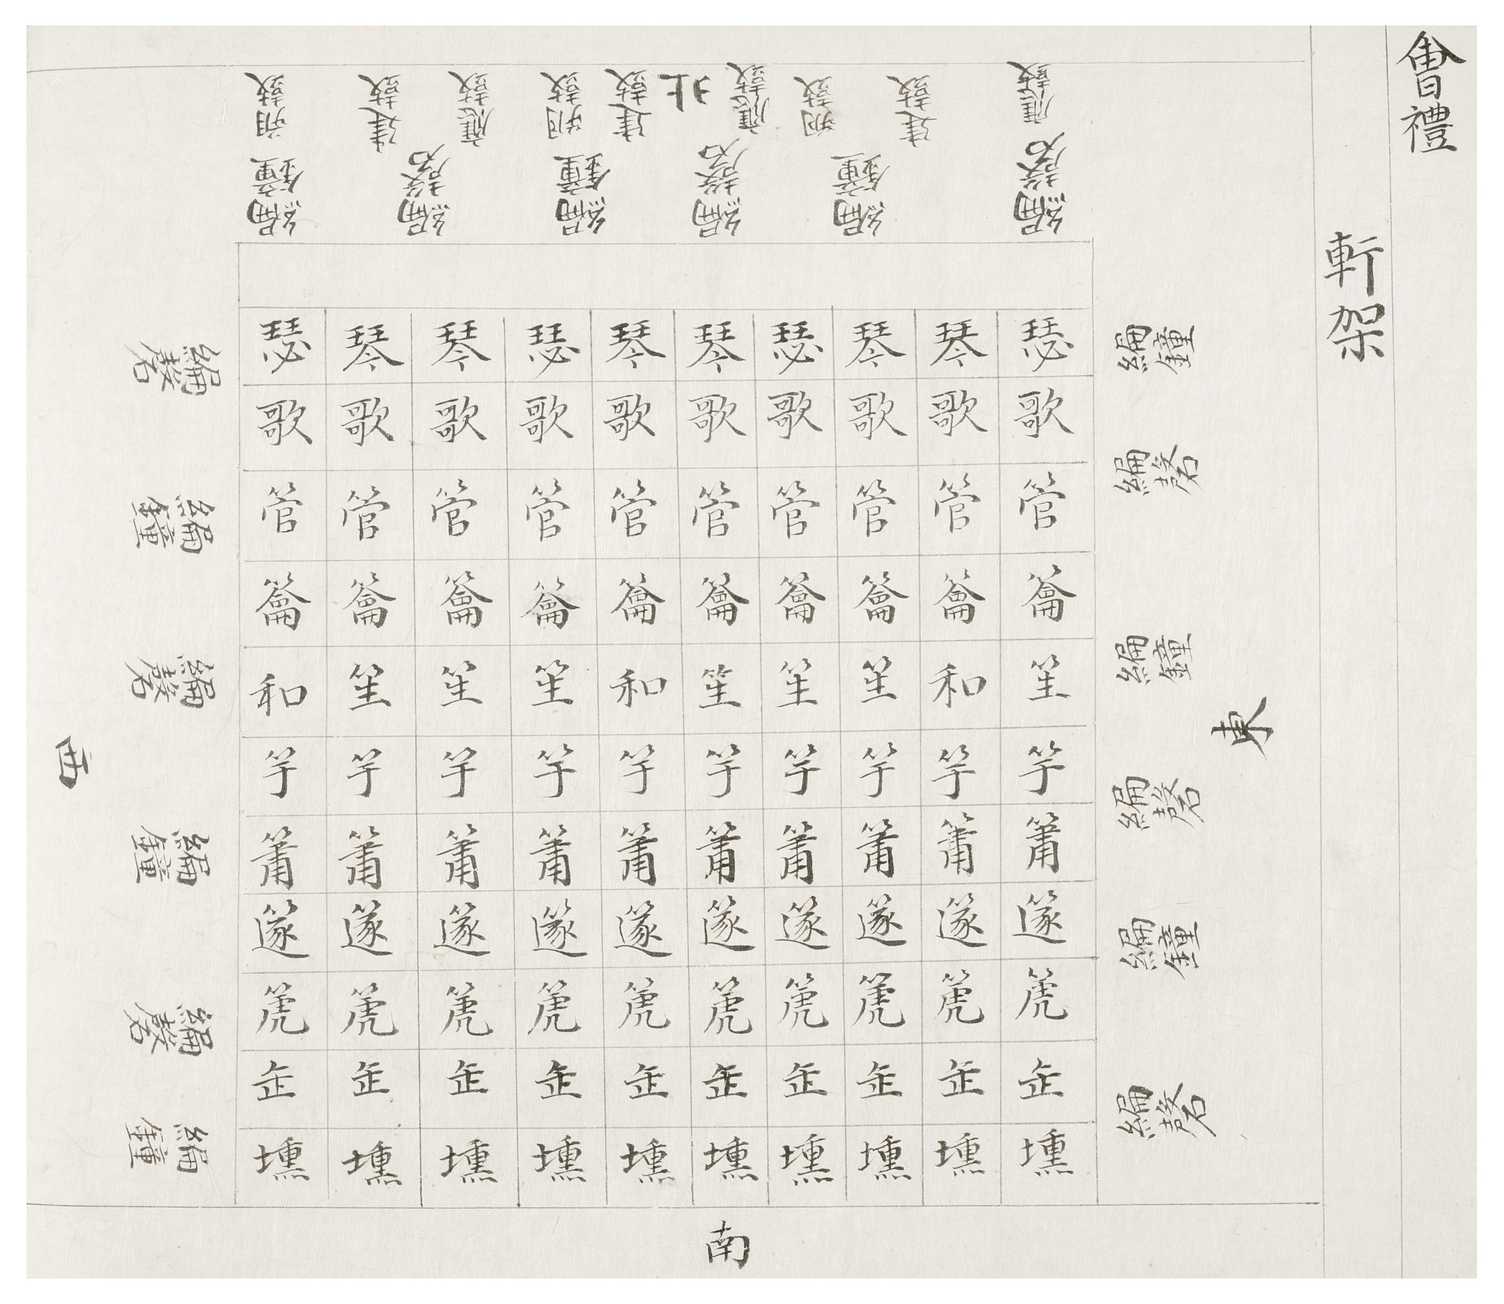 會禮
軒架
北
應鼓
建鼓
朔鼓
應鼓
建鼓
朔鼓
應鼓
建鼓
朔鼓
編磬
編鐘
編磬
編鐘
編磬
編鐘
東
編鐘
編磬
編鐘
編磬
編鐘
編磬
瑟琴琴瑟琴琴瑟琴琴瑟
歌歌歌歌歌歌歌歌歌歌
管管管管管管管管管管
籥籥籥籥籥籥籥籥籥籥
和笙笙笙和笙笙笙和笙
竽竽竽竽竽竽竽竽竽竽
簫簫簫簫簫簫簫簫簫簫
篴篴篴篴篴篴篴篴篴篴
箎箎箎箎箎箎箎箎箎箎
缶缶缶缶缶缶缶缶缶缶
壎壎壎壎壎壎壎壎壎壎
編磬
編鐘
編磬
編鐘
編磬
編鐘
西
南